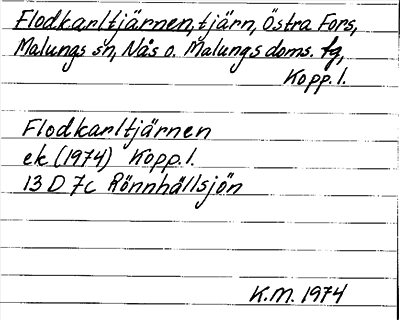 Flodkarltjärnen, tjärn, Östra Fors,
Malungs sn, Nås o. Malungs doms. fg,
Kopp. l.
Flodkarltjärnen
ek (1974) Kopp. l.
13 D 7c Rönnhällsjön
K.M. 1974